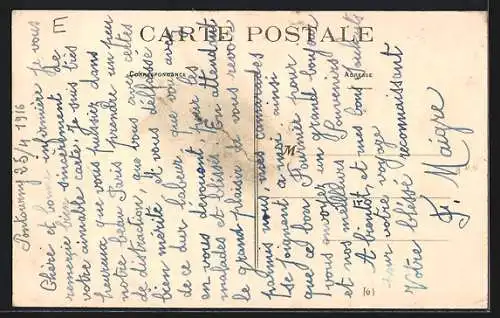 E
CARTE POSTALE
CORRESPONDANCE
ADRESSE
M
Pontourny 25/4 1916
Chère et bonne infirmière je vous
remercie bien sincèrement de
votre aimable carte. Je suis très
heureux que vous puissiez dans
notre beau Paris prendre un peu
de distraction, que vous avez certes
bien mérité, et vous délassé
de ce dur labeur que vous avez
en vous dévouant, pour les
malades et blessés. En attendant
le grand plaisir de vous revoir
parmis nous, mes camarades
se joignent a moi ainsi
que ce bon Faumier pour
vous envoyez un grand bonjour
et nos meilleurs Souvenirs
A bientôt, et mes bons souhaits
pour votre voyage
Votre bléssé reconnaissant
F. Maigre